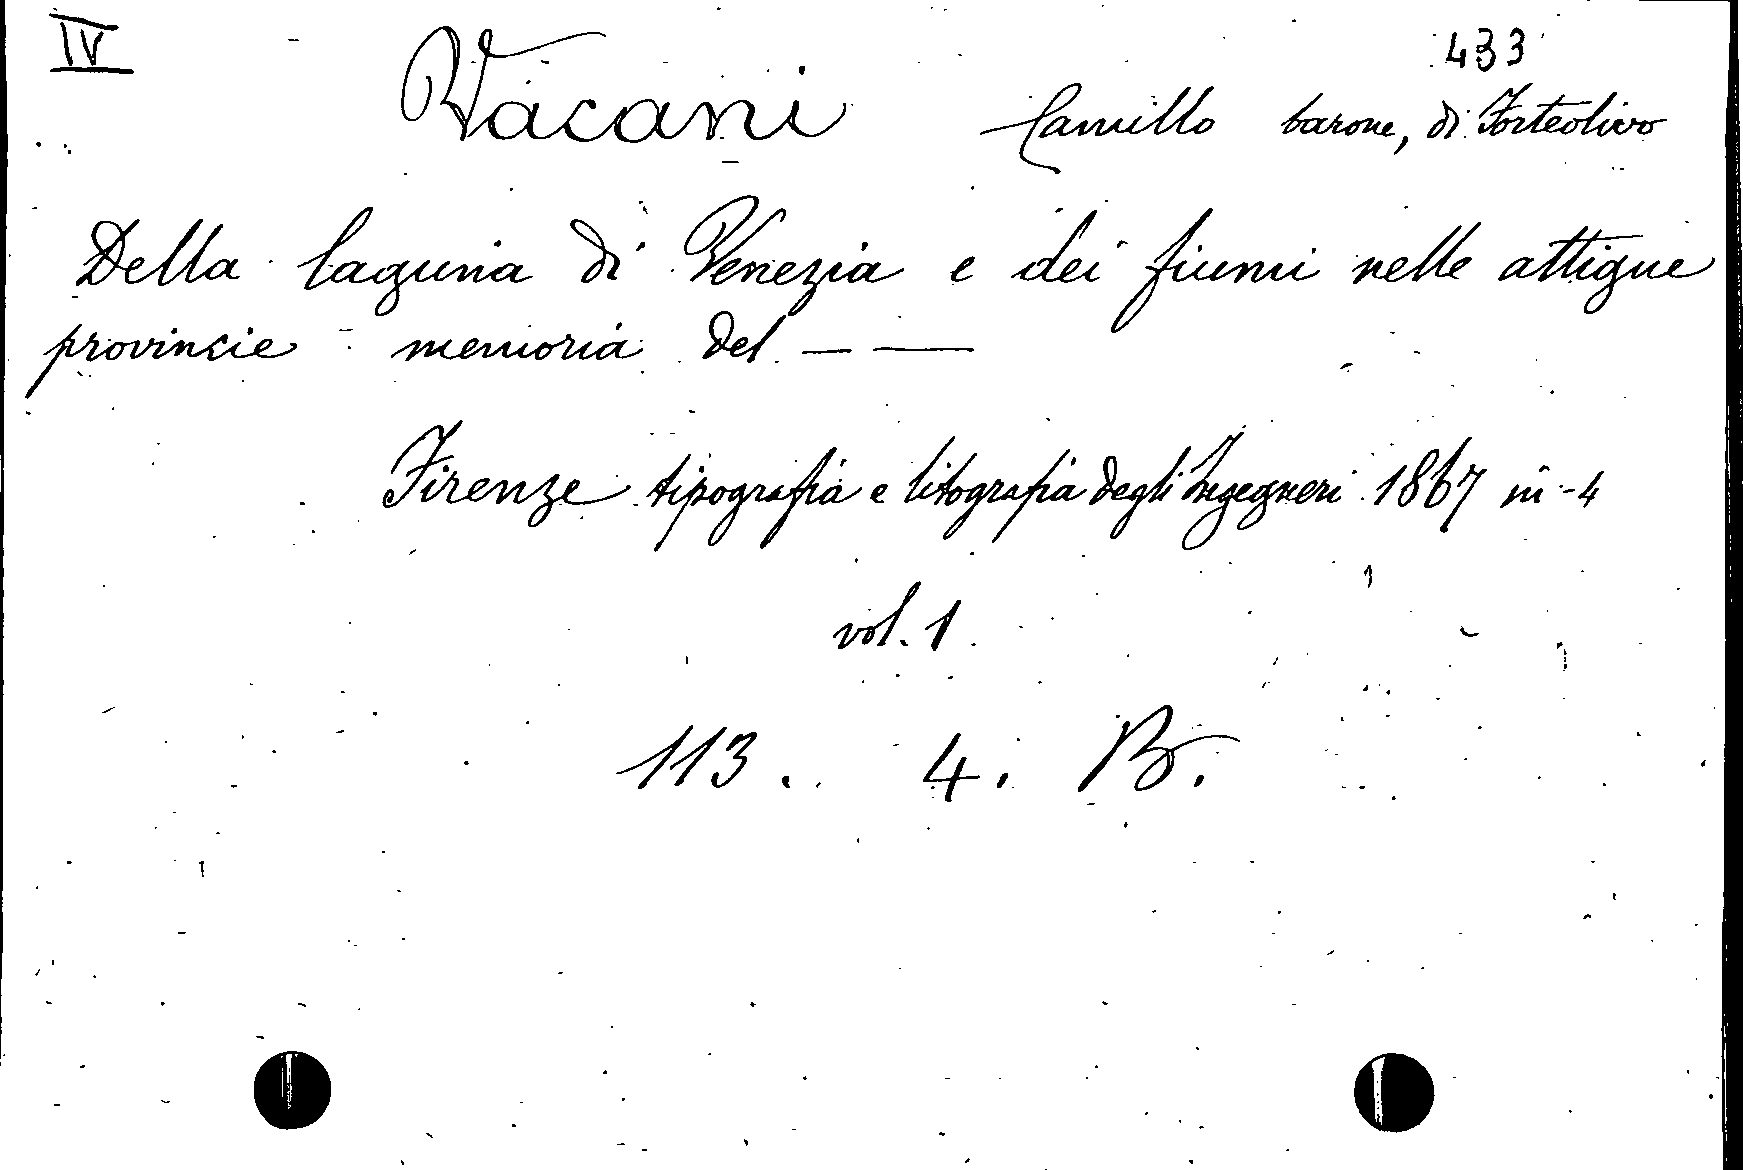 IV
433
Vacani Camillo barone, di Forteolivo
Della laguna di Venezia e dei fiumi nelle attigue
provincie memoria del — —
Firenze tipografia e litografia degli Ingegneri 1867 in-4
vol. 1
113. 4. B.